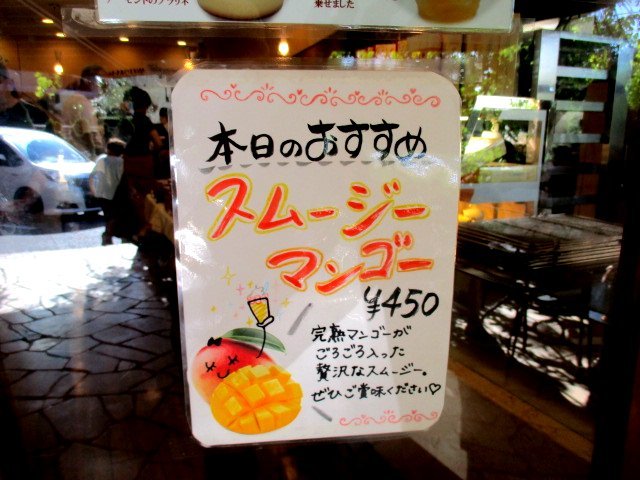 乗せました
本日のおすすめ
スムージー
マンゴー
¥450
完熟マンゴーが
ごろごろ入った
贅沢なスムージー。
ぜひご賞味ください♡